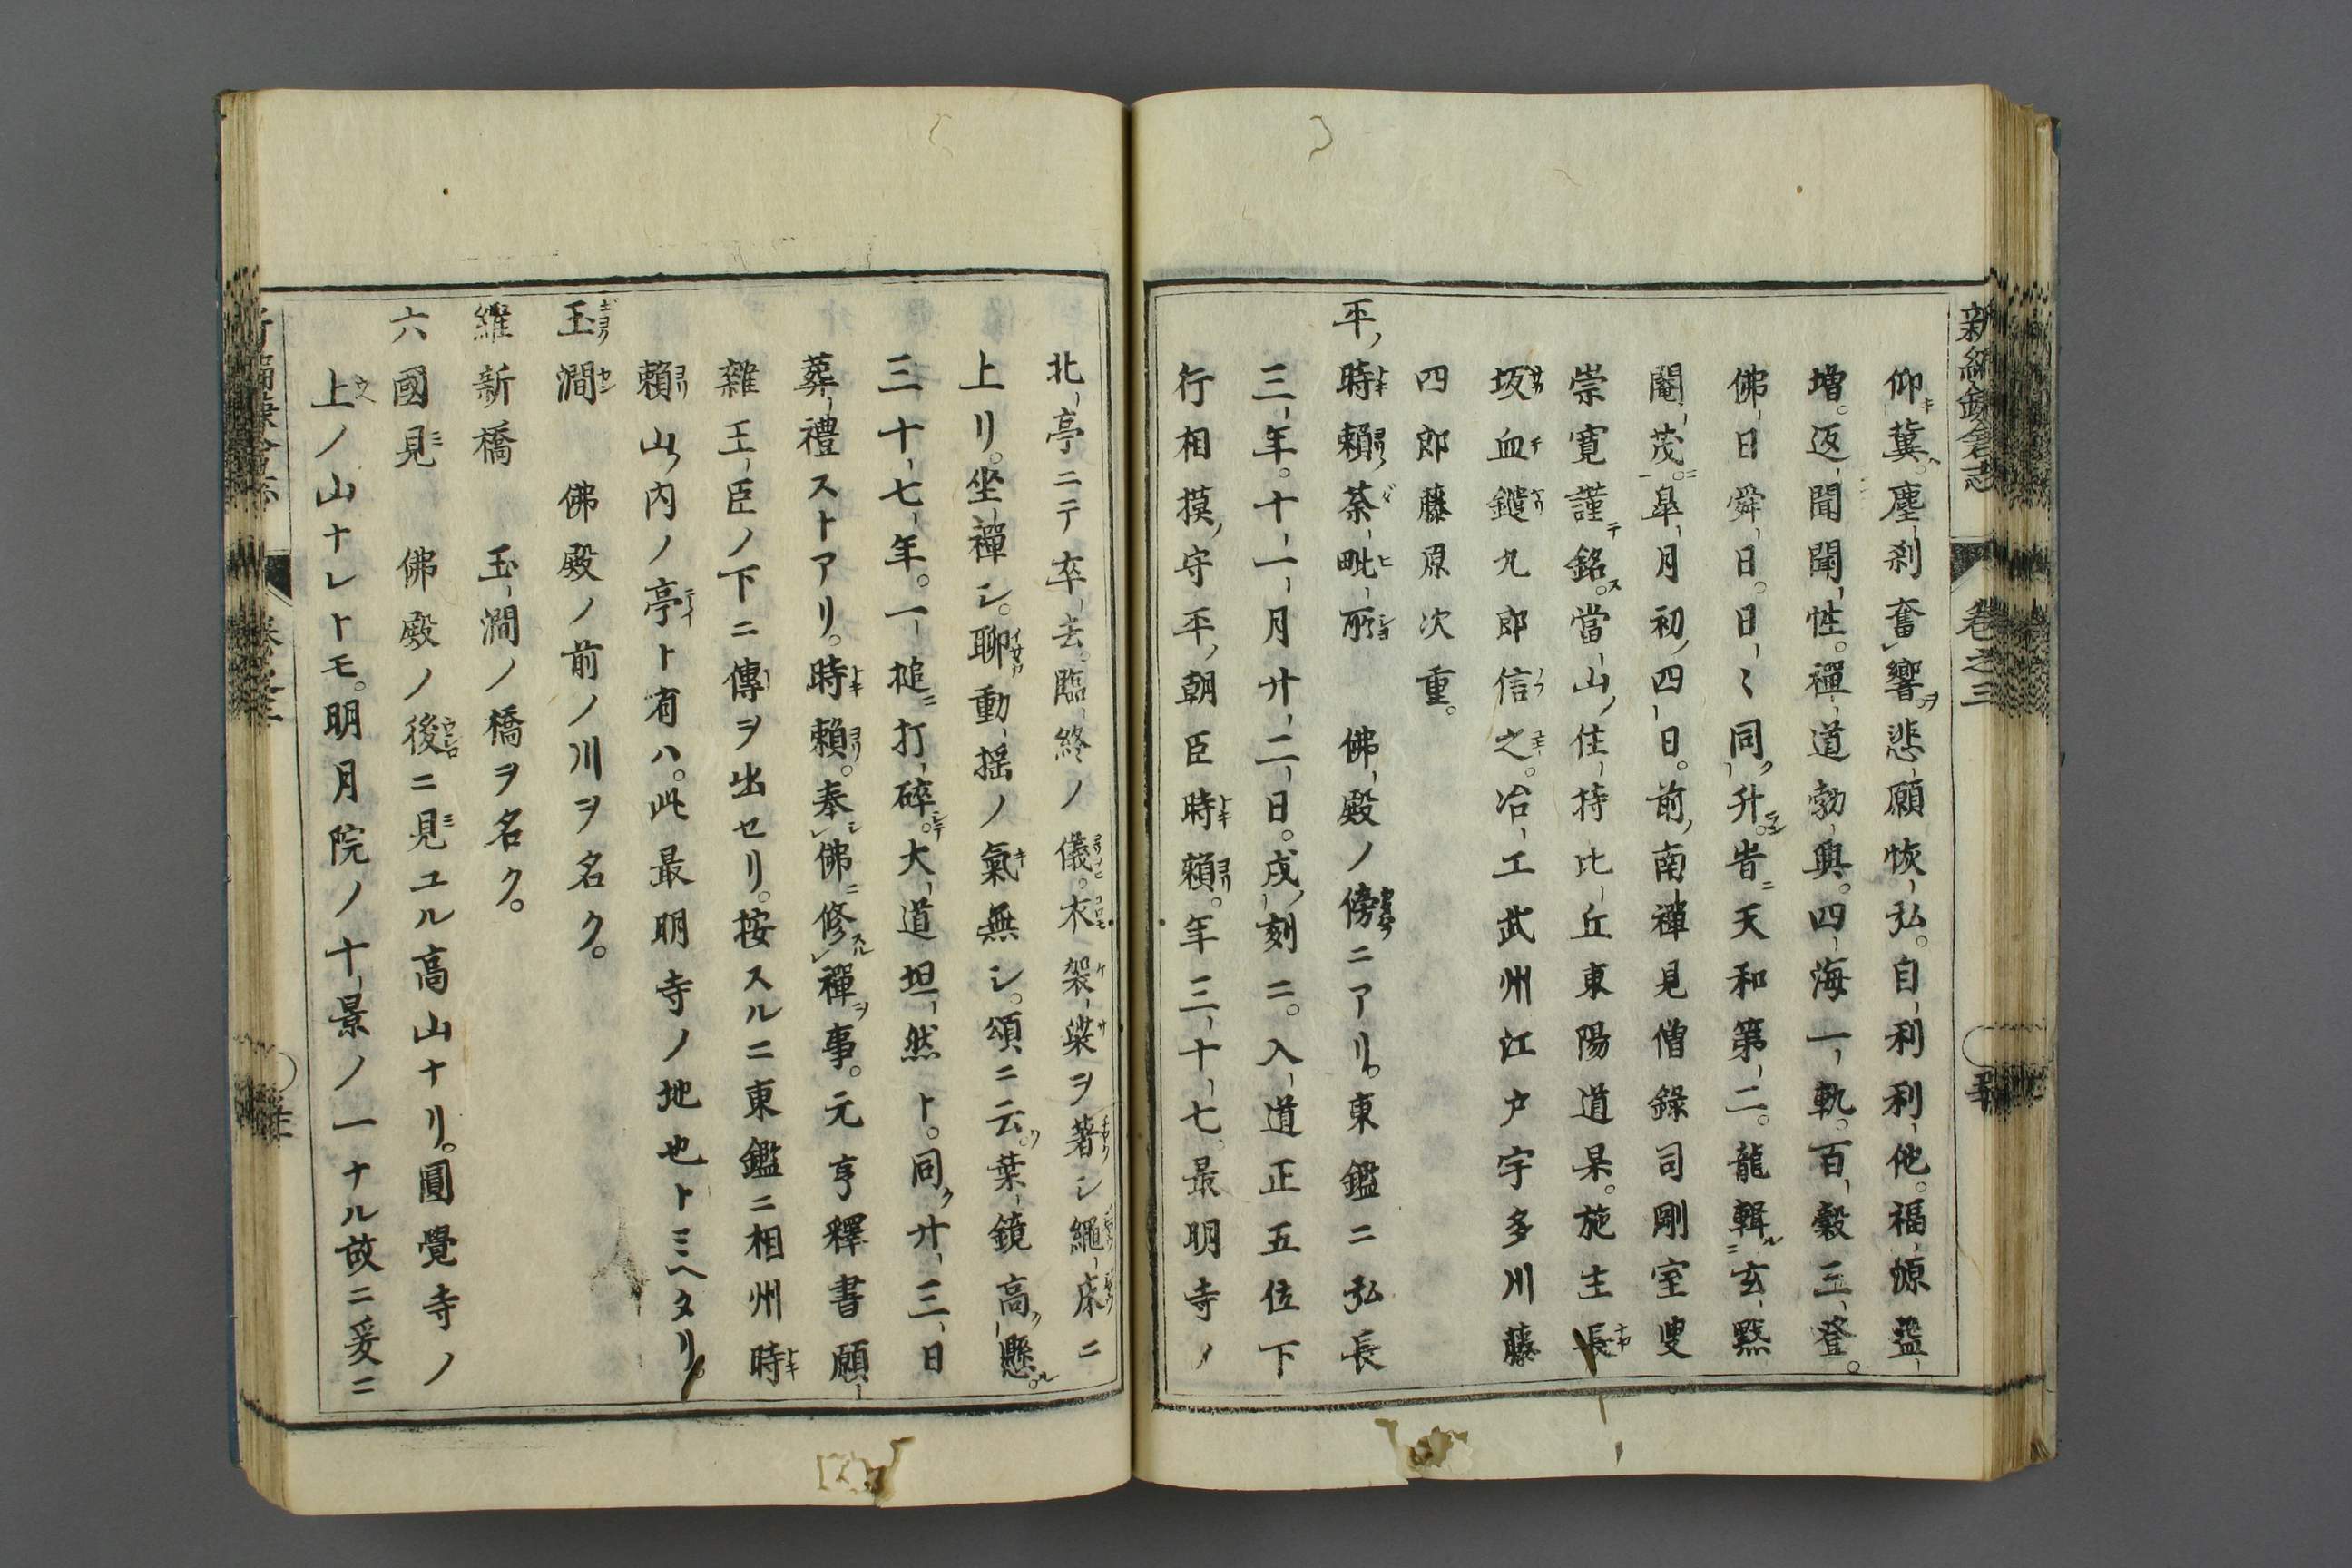 新編鎌倉志 卷之三
仰冀。塵刹奮響。悲願恢弘。自利利他。福源盈
増。返聞聞性。禪道勃興。四海一軌。百穀三登。
佛日舜日。日〻同升。旹天和第二。龍輯玄黙
閹茂。皐月初四日。前南禪見僧錄司剛室叟
崇寛謹銘。當山住持比丘東陽道杲。施主長
坂血鑓九郎信之。冶工武州江戸宇多川藤
四郎藤原次重。
平時賴荼毗所 佛殿ノ傍ニアリ。東鑑ニ弘長
三年。十一月廿二日。戌刻ニ。入道正五位下
行相摸守平朝臣時賴。年三十七。最明寺ノ
北亭ニテ卒去。臨終ノ儀。衣袈裟ヲ著シ繩床ニ
上リ。坐禪シ。聊動揺ノ氣無シ。頌ニ云。葉鏡高懸。
三十七年。一槌打碎。大道坦然ト。同廿三日
葬禮ストアリ。時賴。奉佛修禪事。元亨釋書願
雜王臣ノ下ニ傳ヲ出セリ。按スルニ東鑑ニ相州時
賴山内ノ亭ト有ハ。此最明寺ノ地也トミヘタリ。
玉澗 佛殿ノ前ノ川ヲ名ク。
維新橋 玉澗ノ橋ヲ名ク。
六國見 佛殿ノ後ニ見ユル高山ナリ。圓覺寺ノ
上ノ山ナレトモ。明月院ノ十景ノ一ナル故ニ爰ニ